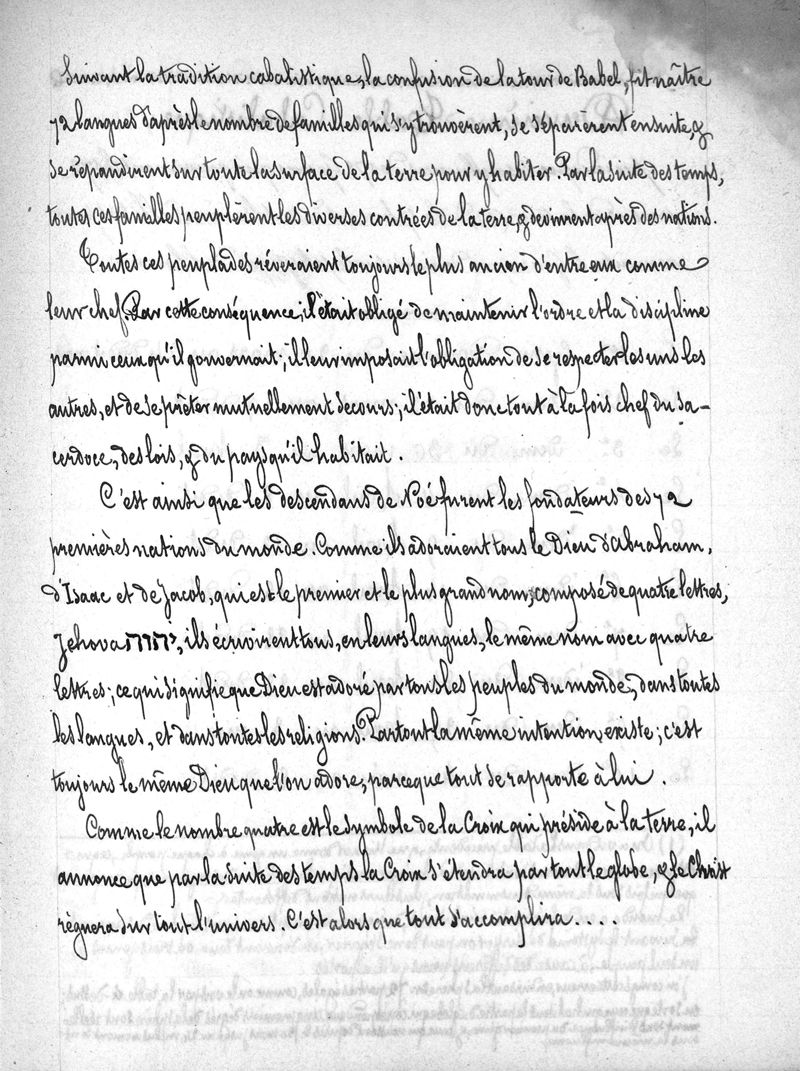 Suivant la tradition cabalistique, la confusion de la tour de Babel, fit naître
72 langues d'après le nombre de familles qui s'y trouvèrent, se séparèrent ensuite, &
se répandirent sur toute la surface de la terre pour y habiter. Par la suite des temps,
toutes ces familles peuplèrent les diverses contrées de la terre, & devinrent après des nations.
Toutes ces peuplades réveraient toujours le plus ancien d'entre eux comme
leur chef. Par cette conséquence, il était obligé de maintenir l'ordre et la discipline
parmi ceux qu'il gouvernait; il leur imposait l'obligation de se respecter les uns les
autres, et de se prêter mutuellement secours; il était donc tout à la fois chef du sa-
cerdoce, des lois, & du pays qu'il habitait.
C'est ainsi que les descendans de Noé furent les fondateurs des 72
premières nations du monde. Comme ils adoraient tous le Dieu d'Abraham,
d'Isaac et de Jacob, qui est le premier et le plus grand nom, composé de quatre lettres,
Jehova יהוה, ils écrivirent tous, en leurs langues, le même nom avec quatre
lettres; ce qui signifie que Dieu est adoré par tous les peuples du monde, dans toutes
les langues, et dans toutes les religions. Partout la même intention existe; c'est
toujours le même Dieu que l'on adore, parce que tout se rapporte à lui.
Comme le nombre quatre est le symbole de la Croix qui préside à la terre, il
annonce que par la suite des temps la Croix s'étendra par tout le globe, & le Christ
règnera sur tout l'univers. C'est alors que tout s'accomplira....